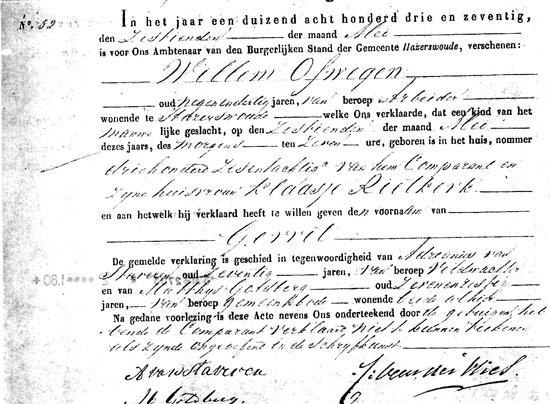 No. 52
In het jaar een duizend acht honderd drie en zeventig,
den Zestienden der maand Mei
is voor Ons Ambtenaar van den Burgerlijken Stand der Gemeente Hazerswoude, verschenen:
Willem Ofwegen
oud negenendertig jaren, van beroep Arbeider
wonende te Hazerswoude welke Ons verklaarde, dat een kind van het
mannelijke geslacht, op den Zestienden der maand Mei
dezes jaars, des morgens ten Zeven ure, geboren is in het huis, nommer
driehonderd Zesentachtig van hem Comparant en
Zijne huisvrouw Klaasje Rietkerk
en aan hetwelk hij verklaard heeft te willen geven den voornaam van
Gerrit
De gemelde verklaring is geschied in tegenwoordigheid van Adrianus van
Staveren oud Zeventig jaren, van beroep Veldwachter
en van Matthys Gotsberg oud Zevenenzestig
jaren, van beroep gemeentebode wonende beide alhier
Na gedane voorlezing is deze Acte nevens Ons onderteekend door de getuigen, hebbende
de Comparant verklaard niet te kunnen teekenen
als zijnde ongeoefend in de Schrijfkunst.
A van Staveren
M Gotsberg